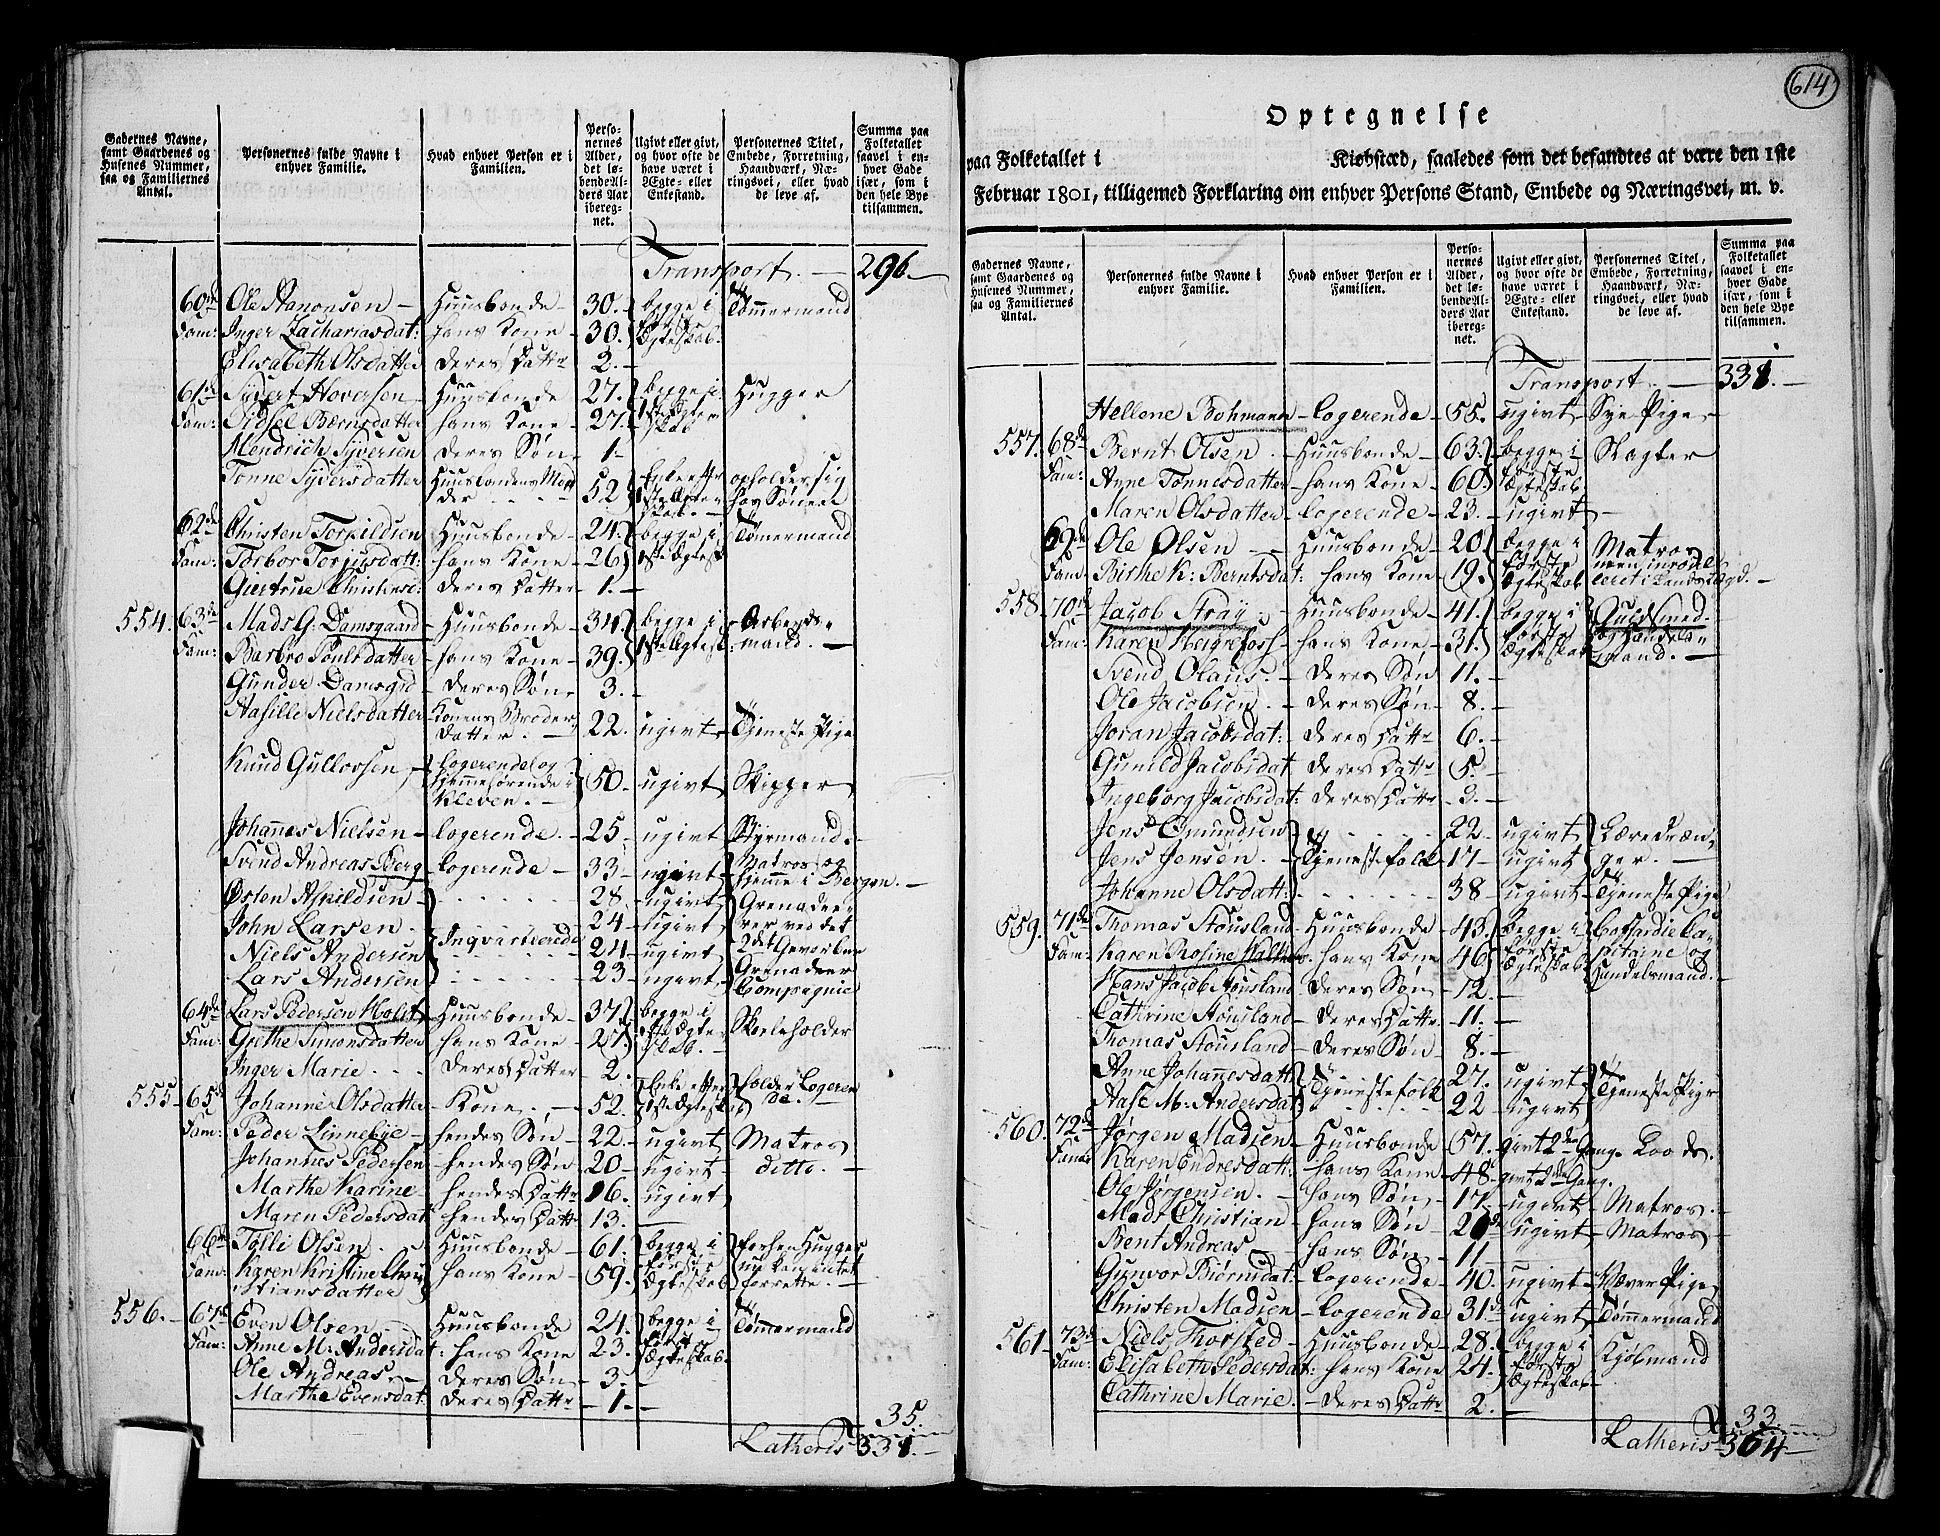 614
Gadernes Navne, samt Gaardenes og Husenes Nummer, saa og Familiernes Antal.
Personernes fulde Navne i enhver Familie.
Hvad enhver Person er i Familien.
Personernes Alder, det løbende Alders Aar iberegnet.
Ugivt eller givt, og hvor ofte de have været i Ægte- eller Enkestand.
Personernes Titel, Embede, Forretning, Haandværk, Næringsvei, eller hvad de leve af.
Summa paa Folketallet saavel i enhver Gade især, som i den hele Bye tilsammen.
Transport. — 296. —
60de Fam: Ole Aanonsen — Huusbonde — 30. begge i Tømmermand
Inger Zachariasdat: hans Kone 30. første Ægteskab.
Elisabeth Olsdatter deres Dattr 2. —
61de Fam: Syvert Hoversen — Huusbonde 27. begge i Hugger
Sidsel Bærnsdatter hans Kone — 27. 1ste Ægteskab
Hendrich Syversen deres Søn — 1. —
Tonne Syversdatter Huusbondens Moder 52 Enke efter 1ste Ægteskab. — opholder sig hos Sønnen
62de Fam: Christen Torkildsen Huusbonde 24. begge i Tømermand
Torbor Torjusdatt: hans Kone — 26 1ste Ægtesk
Giertrue Christensd: deres Datter 1. —
554. 63de Fam: Mads G: Damsgaard Huusbonde 34. begge i Arbeidsmand. —
Barbro Poulsdatter hans Kone — 39. 1ste Ægtesk
Gunder Damsgrd — deres Søn — 3. —
Aasille Nielsdatter Konens Broder Datter. — 22. ugivt Tjeneste Pige
Knud Gullovsen Logerende og hjemmehørende i Kleven. — 50 — ugivt Skipper
Johannes Nielsen — Logerende. — 25 — ugivt Styrmand.
Svend Andreas Berg Logerende — 33 — ugivt Matros og hjemme i Bergen. —
Østen Askildsen — 28 — ugivt Grenadee-
John Larsen . — 24 — ugivt rer ved det
Niels Andersen Inqvarterede 24 — ugivt
Lars Andersen 23 — ugivt Grenadeer Compagnie
64de Fam: Lars Pedersen Holst Huusbonde — 37. begge i Skoleholder
Grethe Simonsdatter hans Kone — 27 1ste Ægteskab. —
Inger Marie . . . deres Datter 2. —
555 — 65de Fam: Johanne Olsdatter Kone . — 52. Enke efter 1ste Ægteskab holder Logerende. —
Peder Linnebye — hendes Søn — 22. — ugivt Matros
Johannes Pedersen hendes Søn — 20 — ugivt ditto. —
Marthe Karine — hendes Dattr 16. — ugivt
Maren Pedersdat: hendes Dattr 13. —
66de Fam: Tølli Olsen . — Huusbonde 61. begge i forhen Hugger
Karen Kristine Christiansdatter hans Kone — 59. første Ægteskab nu kan intet forrette. —
556. — 67de Fam: Even Olsen — Huusbonde 24. begge i Tømmermand
Anne M: Andersdat: hans Kone 23. første Ægteskab.
Ole Andreas. — deres Søn — 3. —
Marthe Evensdat: deres Dattr — 1. —
35.
Latheris 331. —
Optegnelse
paa Folketallet i Kiøbstæd, saaledes som det befandtes at være den 1ste
Februar 1801, tilligemed Forklaring om enhver Persons Stand, Embede og Næringsvei, m. v.
Gadernes Navne, samt Gaardenes og Husenes Nummer, saa og Familiernes Antal.
Personernes fulde Navne i enhver Familie.
Hvad enhver Person er i Familien.
Personernes Alder, det løbende Alders Aar iberegnet.
Ugivt eller givt, og hvor ofte de have været i Ægte- eller Enkestand.
Personernes Titel, Embede, Forretning, Haandværk, Næringsvei, eller hvad de leve af.
Summa paa Folketallet saavel i enhver Gade især, som i den hele Bye tilsammen.
Transport. — 331. —
Hellene Bohmann — Logerende — 55. ugivt Sye Pige
557. 68de Fam: Bernt Olsen . — Huusbonde — 63. begge i Slagter
Anne Tonnesdatter — hans Kone — 60. første Ægteskab.
Maren Olsdatter — Logerende — 23. — ugivt —
69de Fam: Ole Olsen — Huusbonde — 20. begge i Matros
Birthe K: Berntsdat: hans Kone — 19. første Ægteskab men inrolleret i Land
558 — 70de Fam: Jacob Straÿ . — Huusbonde — 41. begge i Guldsmed
Karen Heigrefoss — hans Kone — 31. første Ægteskab og Handelsmand. —
Svend Olaus . — deres Søn 11. —
Ole Jacobsen . — deres Søn — 8. —
Joran Jacobsdat: deres Dattr 6. —
Gunild Jacobsdat deres Dattr 5. —
Ingeborg Jacobsdat: deres Dattr — 3. —
Jens Gmundsen 22 — ugivt Læredrænger. —
Jens Jensen . — Tjenestefolk 17 — ugivt
Johanne Olsdatt: 38 — ugivt Tjeneste Pige
559. 71de Fam: Thomas Stousland Huusbonde — 43. begge i Coffardie Ca-
Karen Rosine Walther hans Kone 46 første Ægteskab pitaine og Handelsmand. —
Hans Jacob Stousland deres Søn — 12. —
Cathrine Stousland — deres Dattr 11. —
Thomas Stousland — deres Søn — 8. —
Anne Johannesdatt: Tjenestefolk 27. ugivt Tjeneste Piger
Aase M: Andersdat: 22 — ugivt
560. 72de Fam: Jørgen Madsen — Huusbonde 57. givt 2de Gang. Loods.
Karen Endresdatt: — hans Kone — 48. givt 2de Gang.
Ole Jørgensen . — hans Søn, 17 — ugivt — Matros. —
Mads Christian — hans Søn 20 — ugivt — Matros —
Bent Andreas hans Søn — 11. —
Gunvor Biørnsdat: Logerende — 40. ugivt — Væver Pige
Christen Madsen — Logerende 31 — ugivt Tømmermand
561. 73de Fam: Niels Thorsted — Huusbonde — 28. begge i Kjøbmand
Elisabeth Pedersdat: hans Kone — 24. første Ægteskab —
Cathrine Marie . — deres Dattr 2. —
33. —
Latheris 364 —